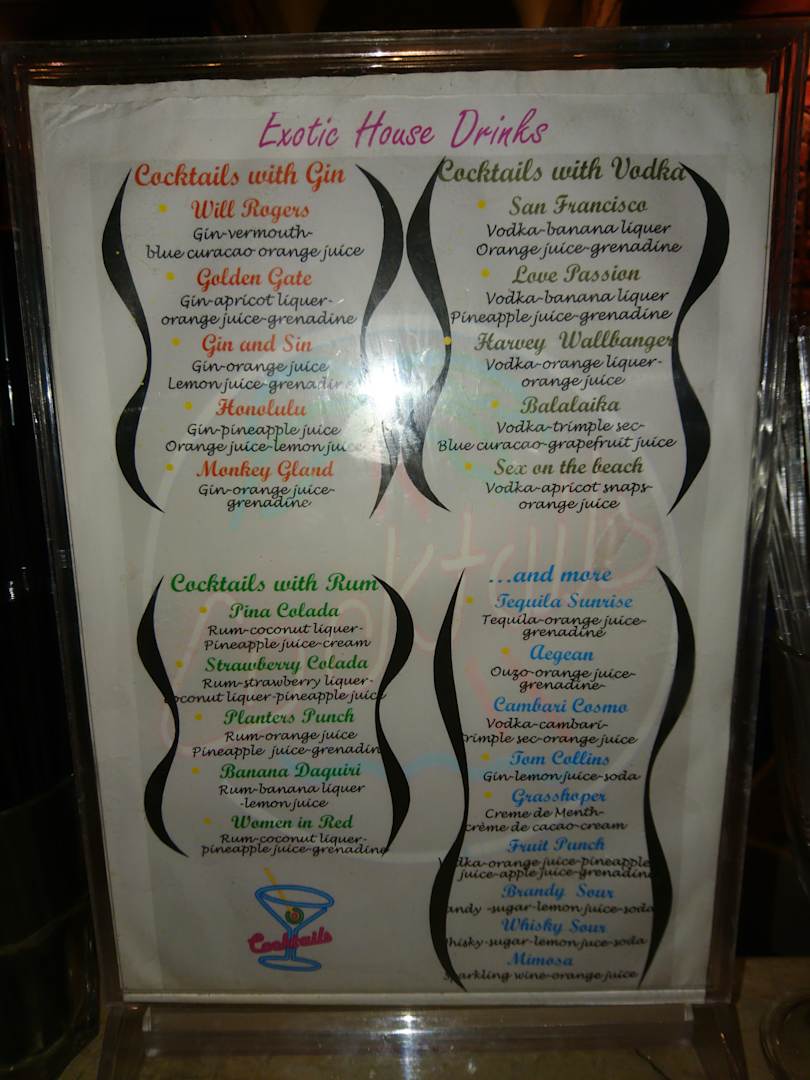 Exotic House Drinks
Cocktails with Gin
Will Rogers
Gin-vermouth-
blue curacao orange juice
Golden Gate
Gin-apricot liquer-
orange juice-grenadine
Gin and Sin
Gin-orange juice
Lemon juice-grenadine
Honolulu
Gin-pineapple juice
Orange juice-lemon juice
Monkey Gland
Gin-orange juice-
grenadine
Cocktails with Vodka
San Francisco
Vodka-banana liquer
Orange juice-grenadine
Love Passion
Vodka-banana liquer
Pineapple juice-grenadine
Harvey Wallbanger
Vodka-orange liquer-
orange juice
Balalaika
Vodka-trimple sec-
Blue curacao-grapefruit juice
Sex on the beach
Vodka-apricot snaps-
orange juice
Cocktails with Rum
Pina Colada
Rum-coconut liquer-
Pineapple juice-cream
Strawberry Colada
Rum-strawberry liquer-
coconut liquer-pineapple juice
Planters Punch
Rum-orange juice
Pineapple juice-grenadin
Banana Daquiri
Rum-banana liquer
-lemon juice
Women in Red
Rum-coconut liquer-
pineapple juice-grenadine
Cocktails
...and more
Tequila Sunrise
Tequila-orange juice-
grenadine
Aegean
Ouzo-orange juice-
grenadine-
Cambari Cosmo
Vodka-cambari-
trimple sec-orange juice
Tom Collins
Gin-lemon juice-soda
Grasshoper
Creme de Menth-
crème de cacao-cream
Fruit Punch
Vodka-orange juice-pineapple
juice-apple juice-grenadine
Brandy Sour
andy -sugar-lemon juice-soda
Whisky Sour
whisky-sugar-lemon juce-soda
Mimosa
Sparkling wine-orange juice
Cocktails